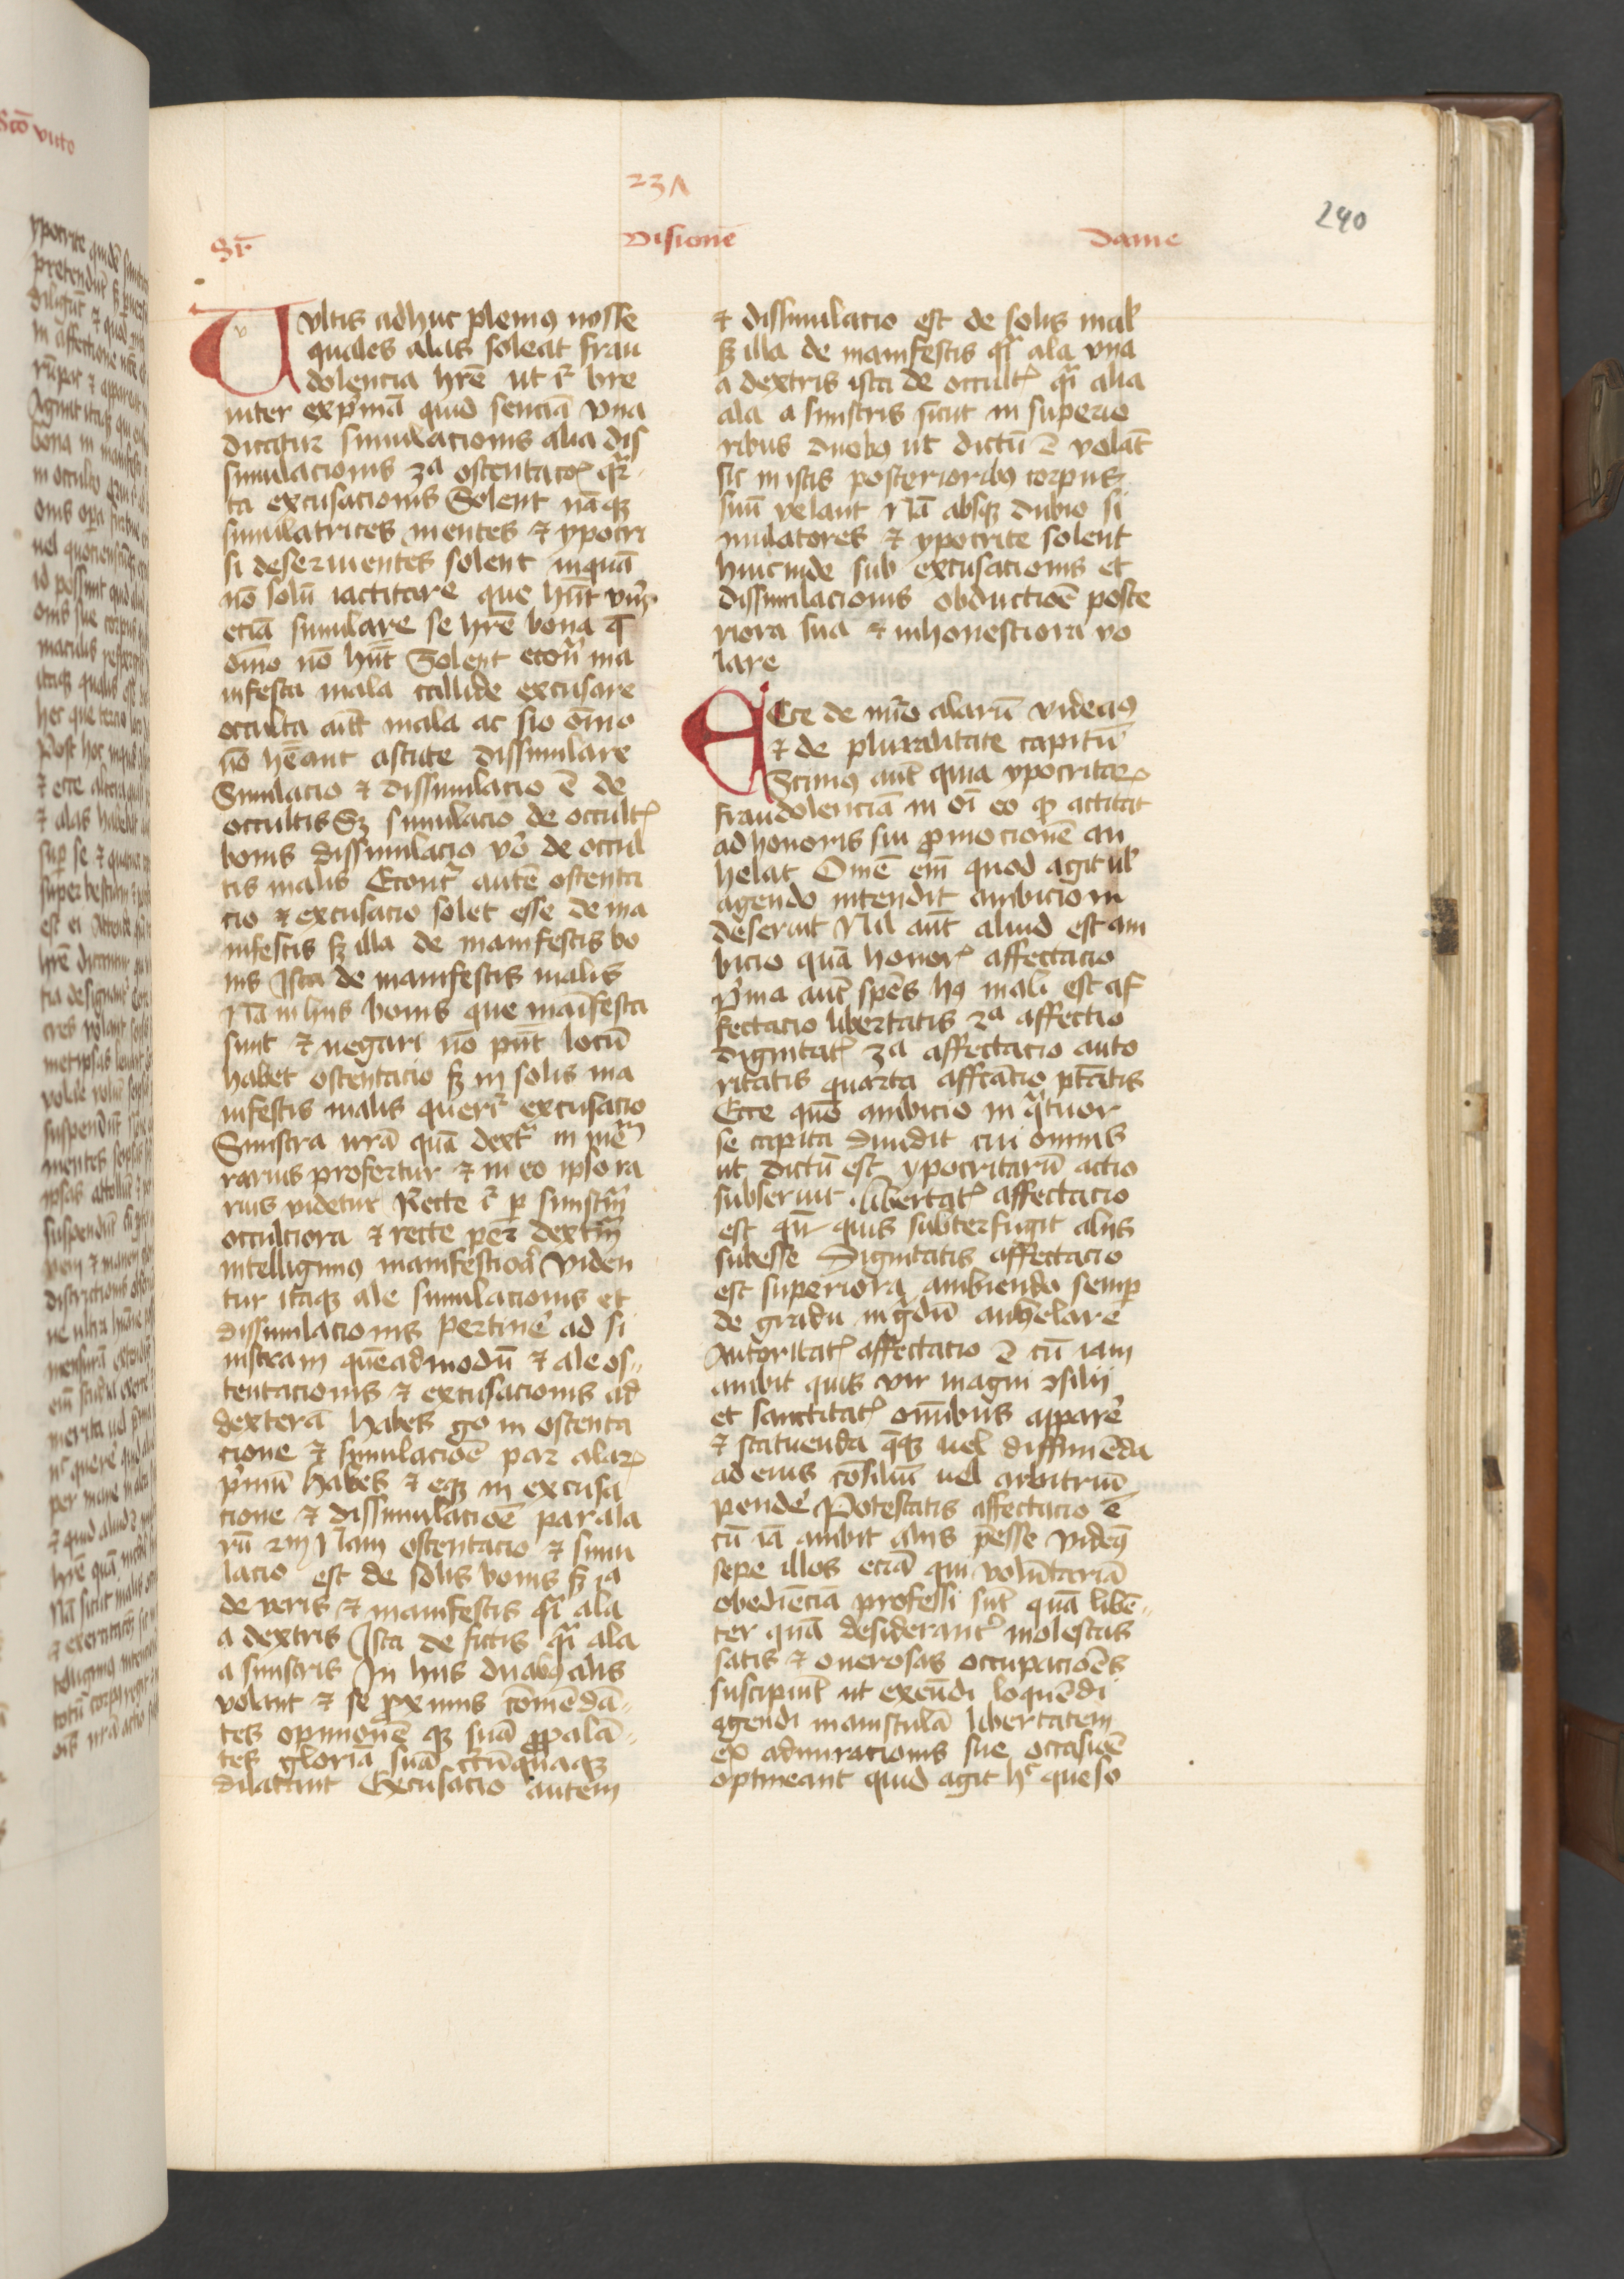 237
240
Sr̄
Visionē
Danie
Vltis adhuc plenius nosse
quales alas soleat frau
dolencia hr̄e ut ḡ bre
uiter exp̄mā quid senciā vna
dicatur simulacionis alia dis
simulacionis 3a ostentacōis q̄r
ta excusacionis Solent nāq3
simulatrices mentes ⁊ ypocri
si deseruientes solent inquā
nō solū iactitare que hn̄t ver̄
eciā simulare se hr̄e bona q̄
oīno nō hn̄t Solent ecoū ma
nifesta mala callide excusare
occulta aūt mala ac sio oīno
nō hēant astute dissimulare
Simulacio ⁊ dissimulacio ē de
occultis S3 simulacio de occultis
bonis dissimulacio vō de occul
tis malis Econt̄ autē ostenta
cio ⁊ excusacio solet esse de ma
nifestis s3 illa de manifestis bo
nis Ista de manifestis malis
Nā in hiis bonis que maīfesta
sunt ⁊ negari nō pn̄t locū
habet ostentacio s3 in solis ma
nifestis malis querit̄ excusacio
Sinistra nr̄a quā dextra in
rarius profertur ⁊ in eo ipso ra
rius videtur Recte ḡ p̄ sinistrā
occulciora ⁊ recte per dextrā
intelligimus manifestiora Viden
tur itaq3 ale simulacionis et
dissimulacionis pertinē ad si
nistram quēadmodū ⁊ ale os
tentacionis ⁊ excusacionis ad
dexterā habes ḡo in ostenta
cione ⁊ simulacioē par alar
p̄mū habes ⁊ eq3 in excusa
cione ⁊ dissimulacioē par ala
rū 2m Nam ostentacio ⁊ simu
lacio est de solis bonis s3 ia
de veris ⁊ manifestis q̄i ala
a dextris Ista de fictis q̄i ala
a sinistris In hiis duabus alis
volant ⁊ se proximis cōmēdā
tes opinionē q3 suā ꝓpalā
tes gloriā suā cūquaq3
dilatant Excusacio autem
⁊ dissimulacio est de solis mal
s3 illa de manifestis q̄i ala vna
a dextris ista de occultis q̄i alia
ala a sinistris sicut in superio
ribus duobus ut dictū ē volāt
sic in istis posterioribus corpus
suū velant Nā absq3 dubio si
mulatores ⁊ ypocrite solent
hincinde sub excusacionis et
dissimilacionis obductioē poste
riora sua ⁊ inhonestiora vo
lare
ECce de nūo alarū videamus
⁊ de pluralitate capitū
Scimus aūt quia ypocritar
fraudolenciā in oī eo qd actitat
ad honoris sui ꝓmocionē an
helat Omē em̄ quod agit ul
agendo intendit ambicioni
deseruit Nil aūt aliud est am
bicio quā honoris affectacio
P̄ma aūt spēs hus mali est af
fectacio libertatis 2a affectio
dignitatis 3a affectacio auto
ritatis quarta affc̄acio ptātis
Ecce quō ambicio in q̄tuor
se capita diuidit cui omnis
ut dictū est ypocritarū actio
subseruit libertatis affectacio
est qn̄ quis subterfugit aliis
subesse Dignitatis affectacio
est superiora ambiendo semp
de gradu in ḡdū anhelare
Autoritatis affectacio ē cū iam
ambit quis vir magni ꝯsilii
et sanctitatis omībus apparē
⁊ statuenda q̄q3 uel diffiniēda
ad eius cōsiliū uel arbitriū
pendē Potestatis affectacio ē
cū iā ambit aliis pēsse videmus
sepe illos eciā qui volūtariā
obediēciā professi sūt quā libē
ter quā desiderant̄ molestas
satis ⁊ onerosas occupacioēs
suscipiūt ut exeūdi loquēdi
agendi mamsculā libertatem
ex admiracionis sue occasiōe
optineant quid agit hc queso